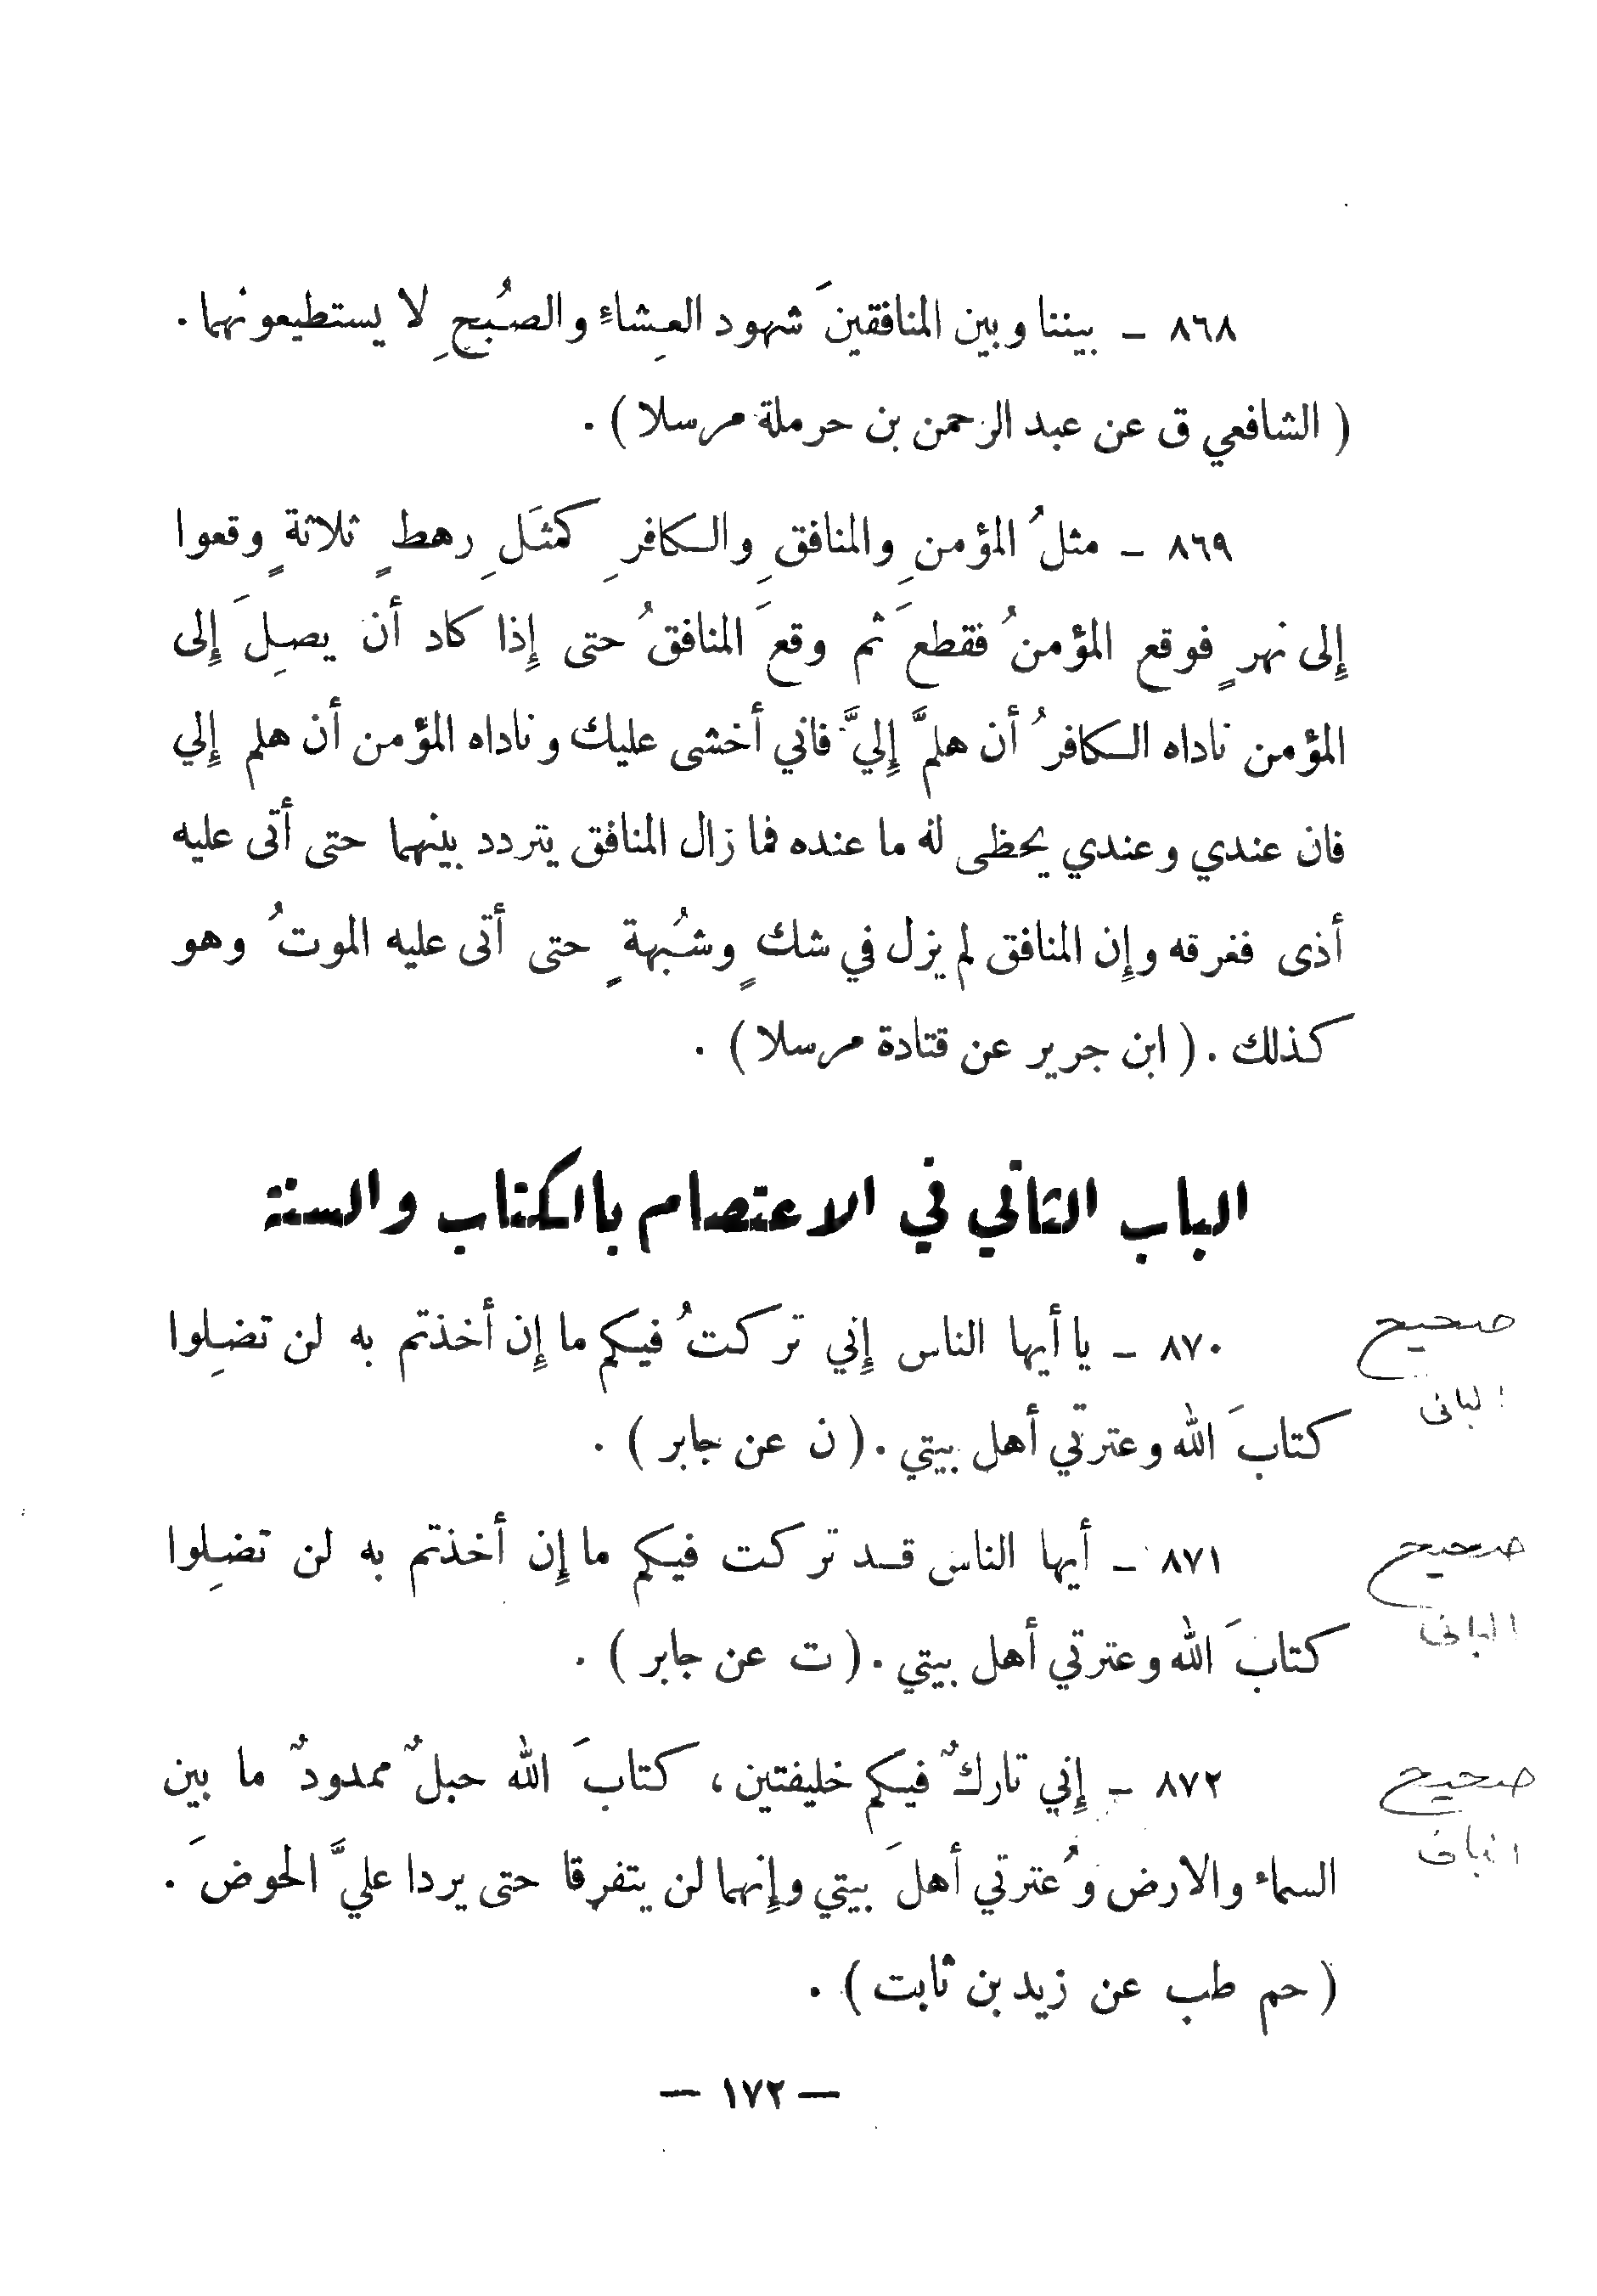 ٨٦٨ ـ بيننا وبين المنافقينَ شهود العِشاءِ والصُبحِ لا يستطيعونهما .
( الشافعي ق عن عبد الرحمن بن حرملة مرسلا ) .
٨٦٩ ـ مثلُ المؤمنِ والمنافقِ والكافرِ كمثَلِ رهطٍ ثلاثةٍ وقعوا
إِلى نهرٍ فوقع المؤمنُ فقطعَ ثم وقعَ المنافقُ حتى إِذا كاد أن يصِلَ إِلى
المؤمن ناداه الكافرُ أن هلمَّ إِليَّ فاني أخشى عليك وناداه المؤمن أن هلم إِلي
فان عندي وعندي يحظى له ما عنده فما زال المنافق يتردد بينهما حتى أتى عليه
أذى فغرقه وإِن المنافق لم يزل في شكٍ وشُبهةٍ حتى أتى عليه الموتُ وهو
كذلك . ( ابن جرير عن قتادة مرسلا ) .
الباب الثاني في الاعتصام بالكتاب والسنة
٨٧٠ ـ يا أيها الناس إِني تركتُ فيكم ما إِن أخذتم به لن تضِلوا
صحيح
البانى
كتابَ الله وعترتي أهل بيتي . ( ن عن جابر ) .
٨٧١ ـ أيها الناس قد تركت فيكم ما إِن أخذتم به لن تضِلوا
صحيح
البانى
كتابَ الله وعترتي أهل بيتي . ( ت عن جابر ) .
٨٧٢ ـ إِني تاركٌ فيكم خليفتين ، كتابَ الله حبلٌ ممدودٌ ما بين
صحيح
السماء والارض وعُترتي أهلَ بيتي وإِنهما لن يتفرقا حتى يردا عليَّ الحوضَ .
( حم طب عن زيد بن ثابت ) .
— ١٧٢ —